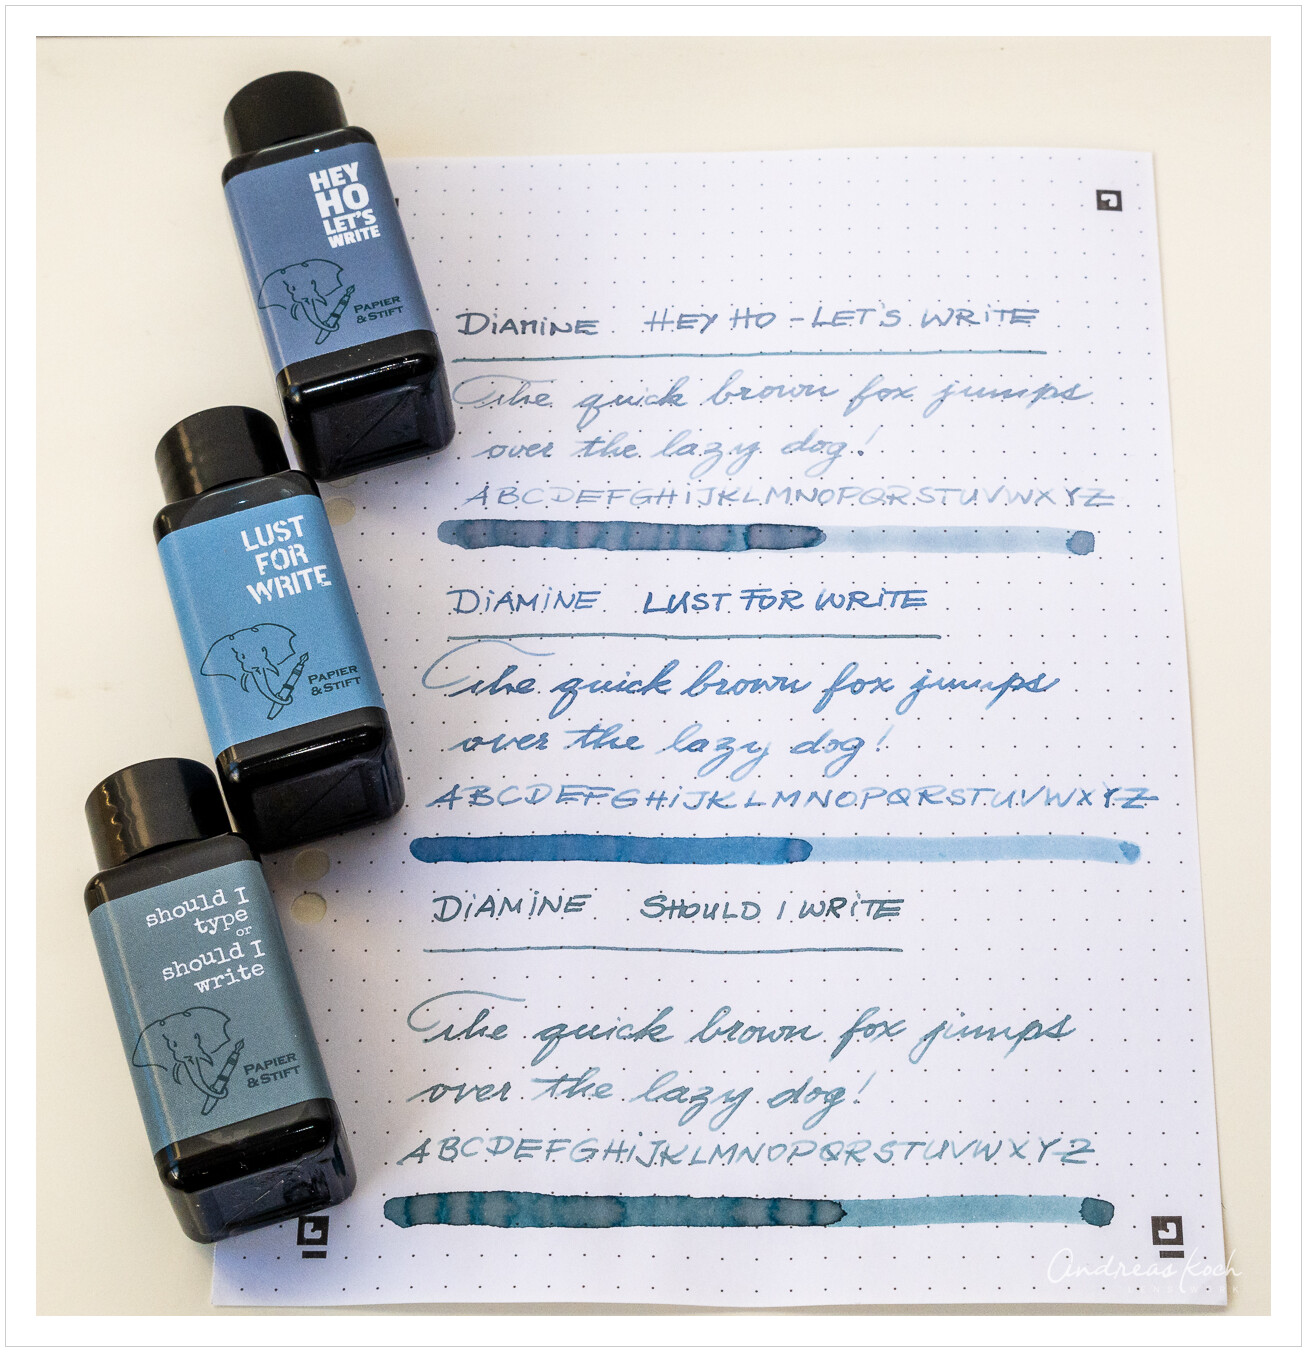 HEY
HO
LET'S
WRITE
PAPIER
&STIFT
DIAMINE HEY HO - LET'S WRITE
The quick brown fox jumps
over the lazy dog!
ABCDEFGHIJKLMNOPQRSTUVWXYZ
LUST
FOR
WRITE
PAPIER
&STIFT
DIAMINE LUST FOR WRITE
The quick brown fox jumps
over the lazy dog!
ABCDEFGHIJKLMNOPQRSTUVWXYZ
should I
type
or
should I
write
PAPIER
&STIFT
DIAMINE SHOULD I WRITE
The quick brown fox jumps
over the lazy dog!
ABCDEFGHIJKLMNOPQRSTUVWXYZ
Andreas Koch